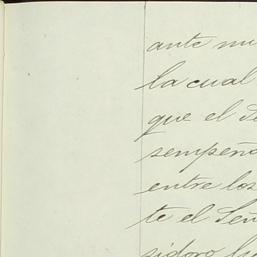 ante mi
la cual
que el
sempeña
entre los
te el Señ
sidoro